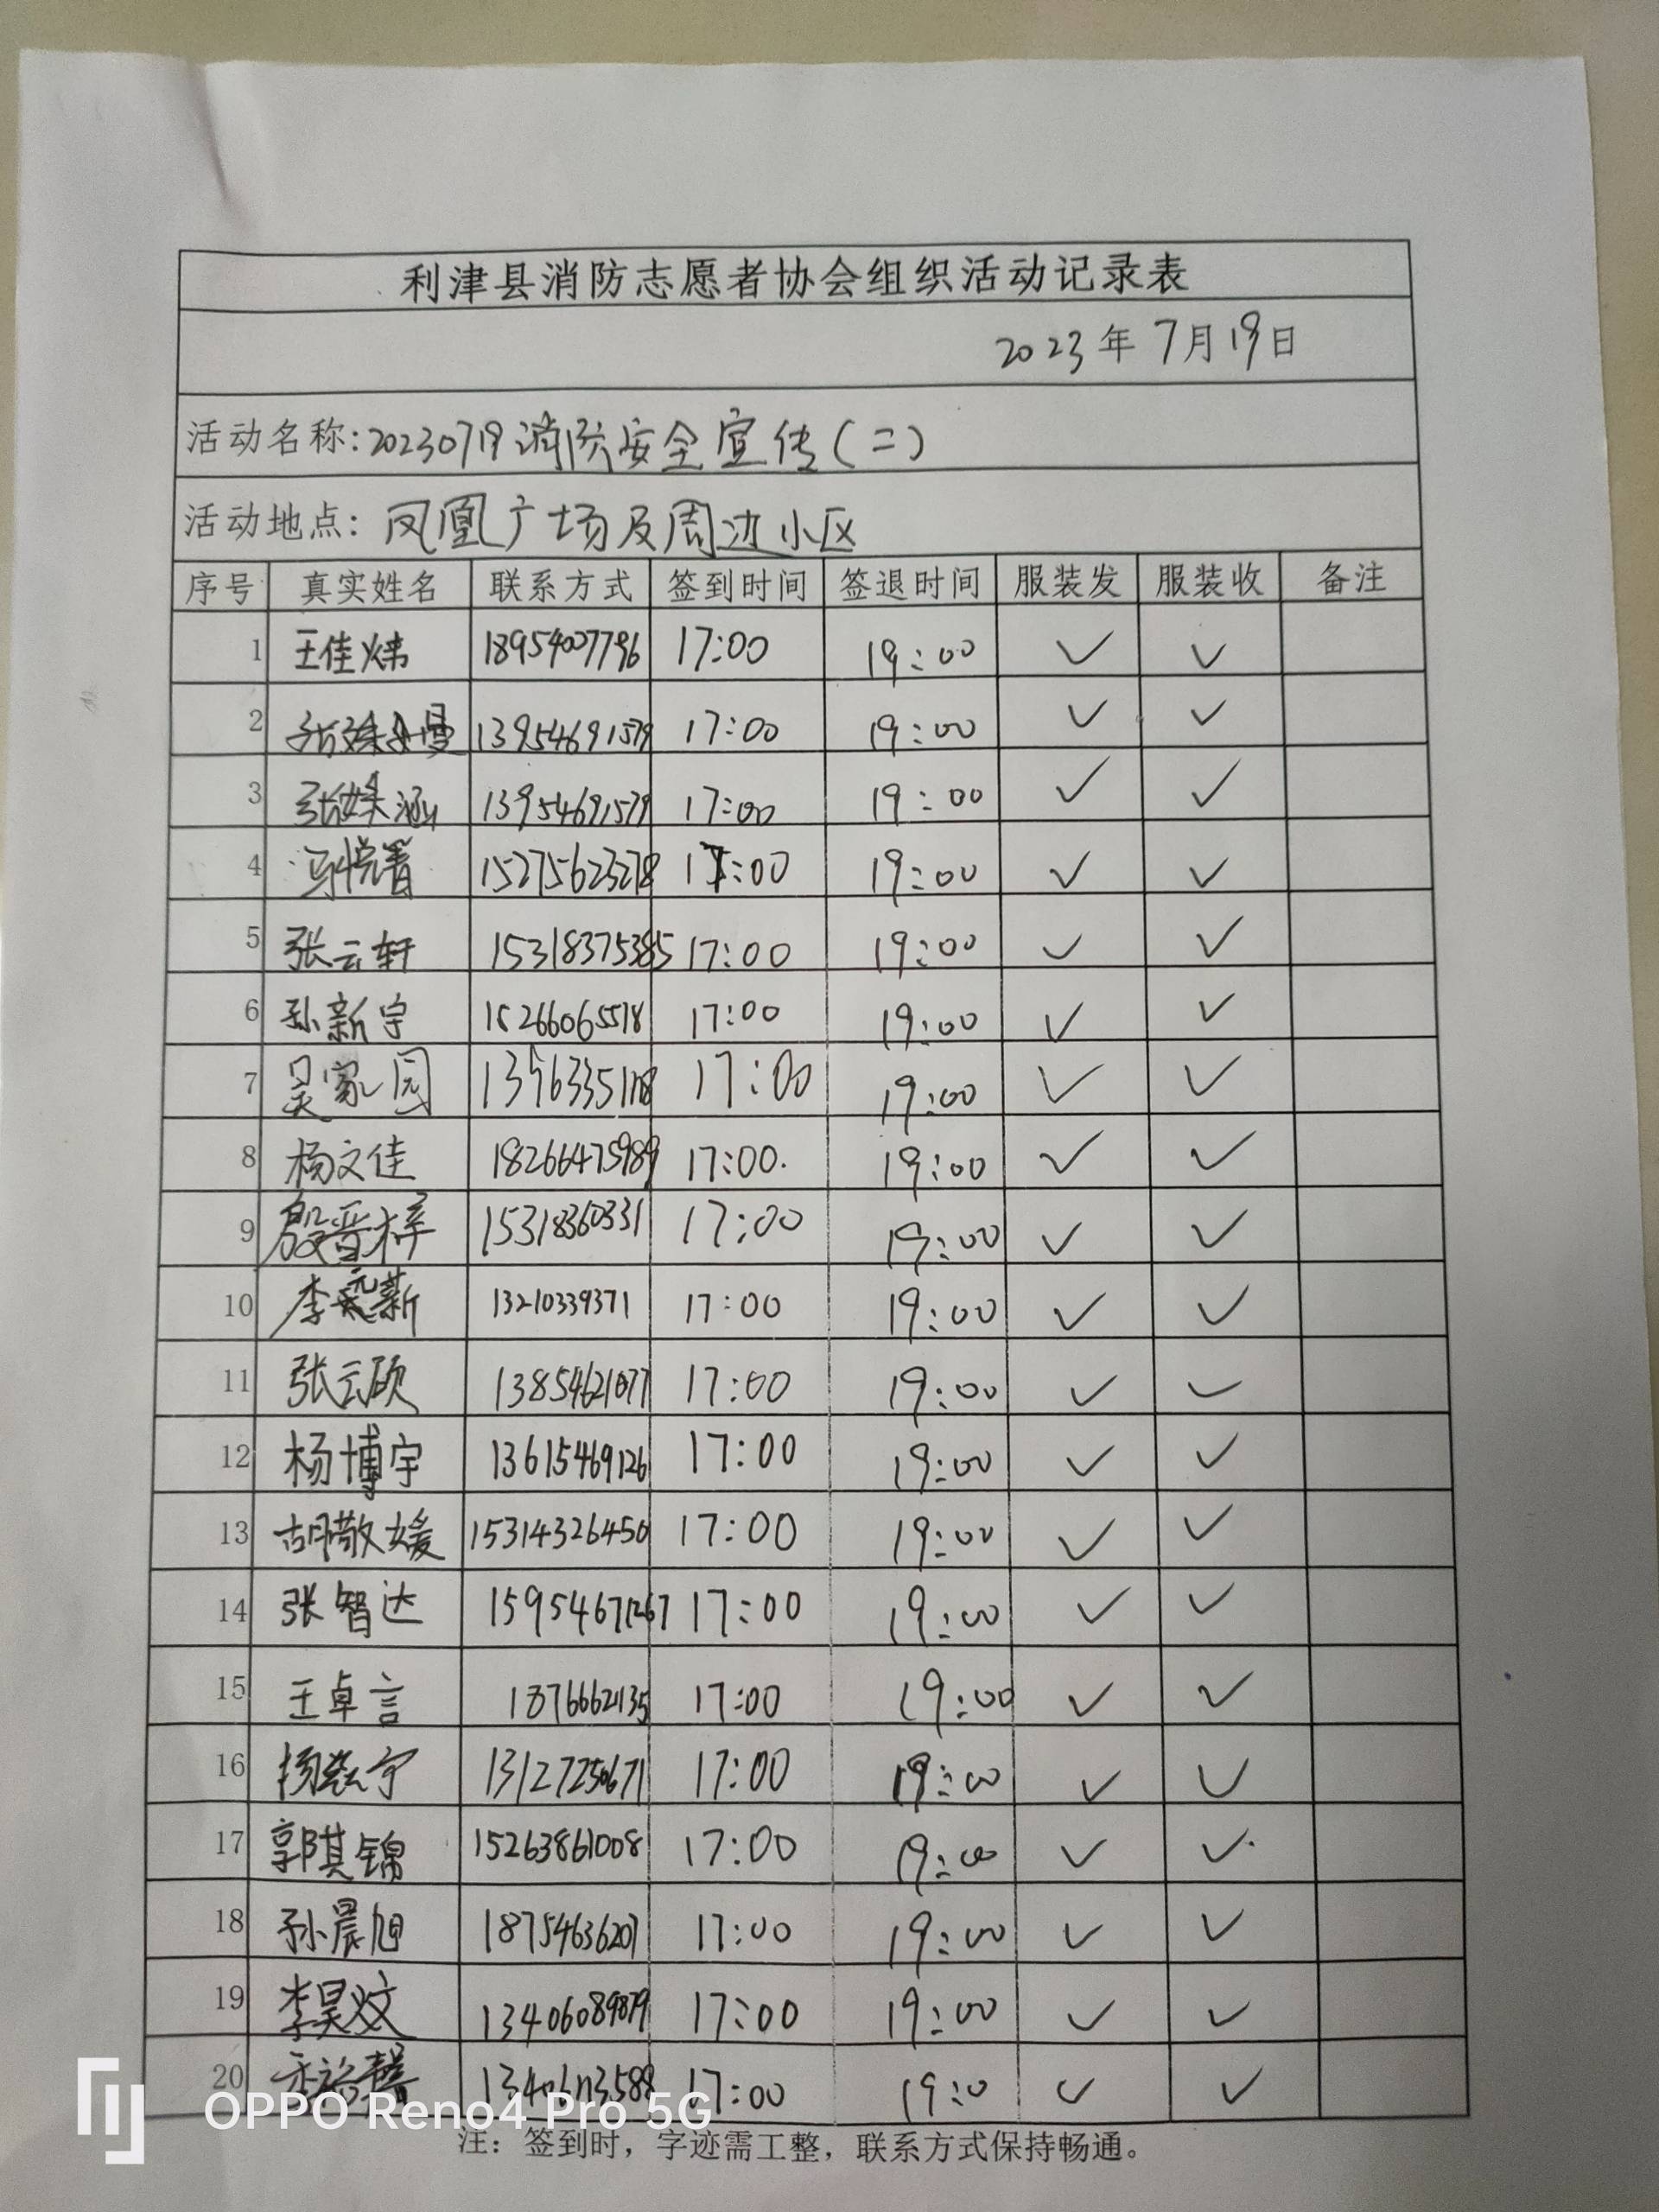 利津县消防志愿者协会组织活动记录表
2023年7月19日
活动名称:20230719消防安全宣传(二)
活动地点: 凤凰广场及周边小区
序号 真实姓名 联系方式 签到时间 签退时间 服装发 服装收 备注
1 王佳炜 18954007796 17:00 19:00 ✓ ✓
2 13954691579 17:00 19:00 ✓ ✓
3 13954691579 17:00 19:00 ✓ ✓
4 15275623278 17:00 19:00 ✓ ✓
5 张云轩 15318375385 17:00 19:00 ✓ ✓
6 孙新宇 15266065518 17:00 19:00 ✓ ✓
7 吴家园 17:00 19:00 ✓ ✓
8 杨文佳 18266475989 17:00. 19:00 ✓ ✓
9 殷晋梓 15318360331 17:00 19:00 ✓ ✓
10 13210339371 17:00 19:00 ✓ ✓
11 张云硕 13854621077 17:00 19:00 ✓ ✓
12 杨博宇 13615469126 17:00 19:00 ✓ ✓
13 胡敬媛 15314326450 17:00 19:00 ✓ ✓
14 张智达 15954671267 17:00 19:00 ✓ ✓
15 王卓言 17:00 19:00 ✓ ✓
16 13127250671 17:00 19:00 ✓ ✓
17 郭琪锦 15263861008 17:00 19:00 ✓ ✓
18 孙晨旭 18754636207 17:00 19:00 ✓ ✓
19 李昊炆 13406089879 17:00 19:00 ✓ ✓
20 17:00 19:0 ✓ ✓
OPPO Reno4 Pro 5G
注: 签到时, 字迹需工整, 联系方式保持畅通。